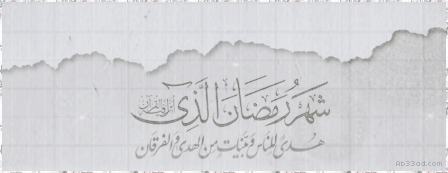 شَهْرُ رَمَضَانَ الَّذِي أُنْزِلَ فِيهِ الْقُرْآنُ
هُدىً لِلنَّاسِ وَبَيِّنَاتٍ مِنَ الْهُدَى وَالْفُرْقَانِ
Ab33ad.com